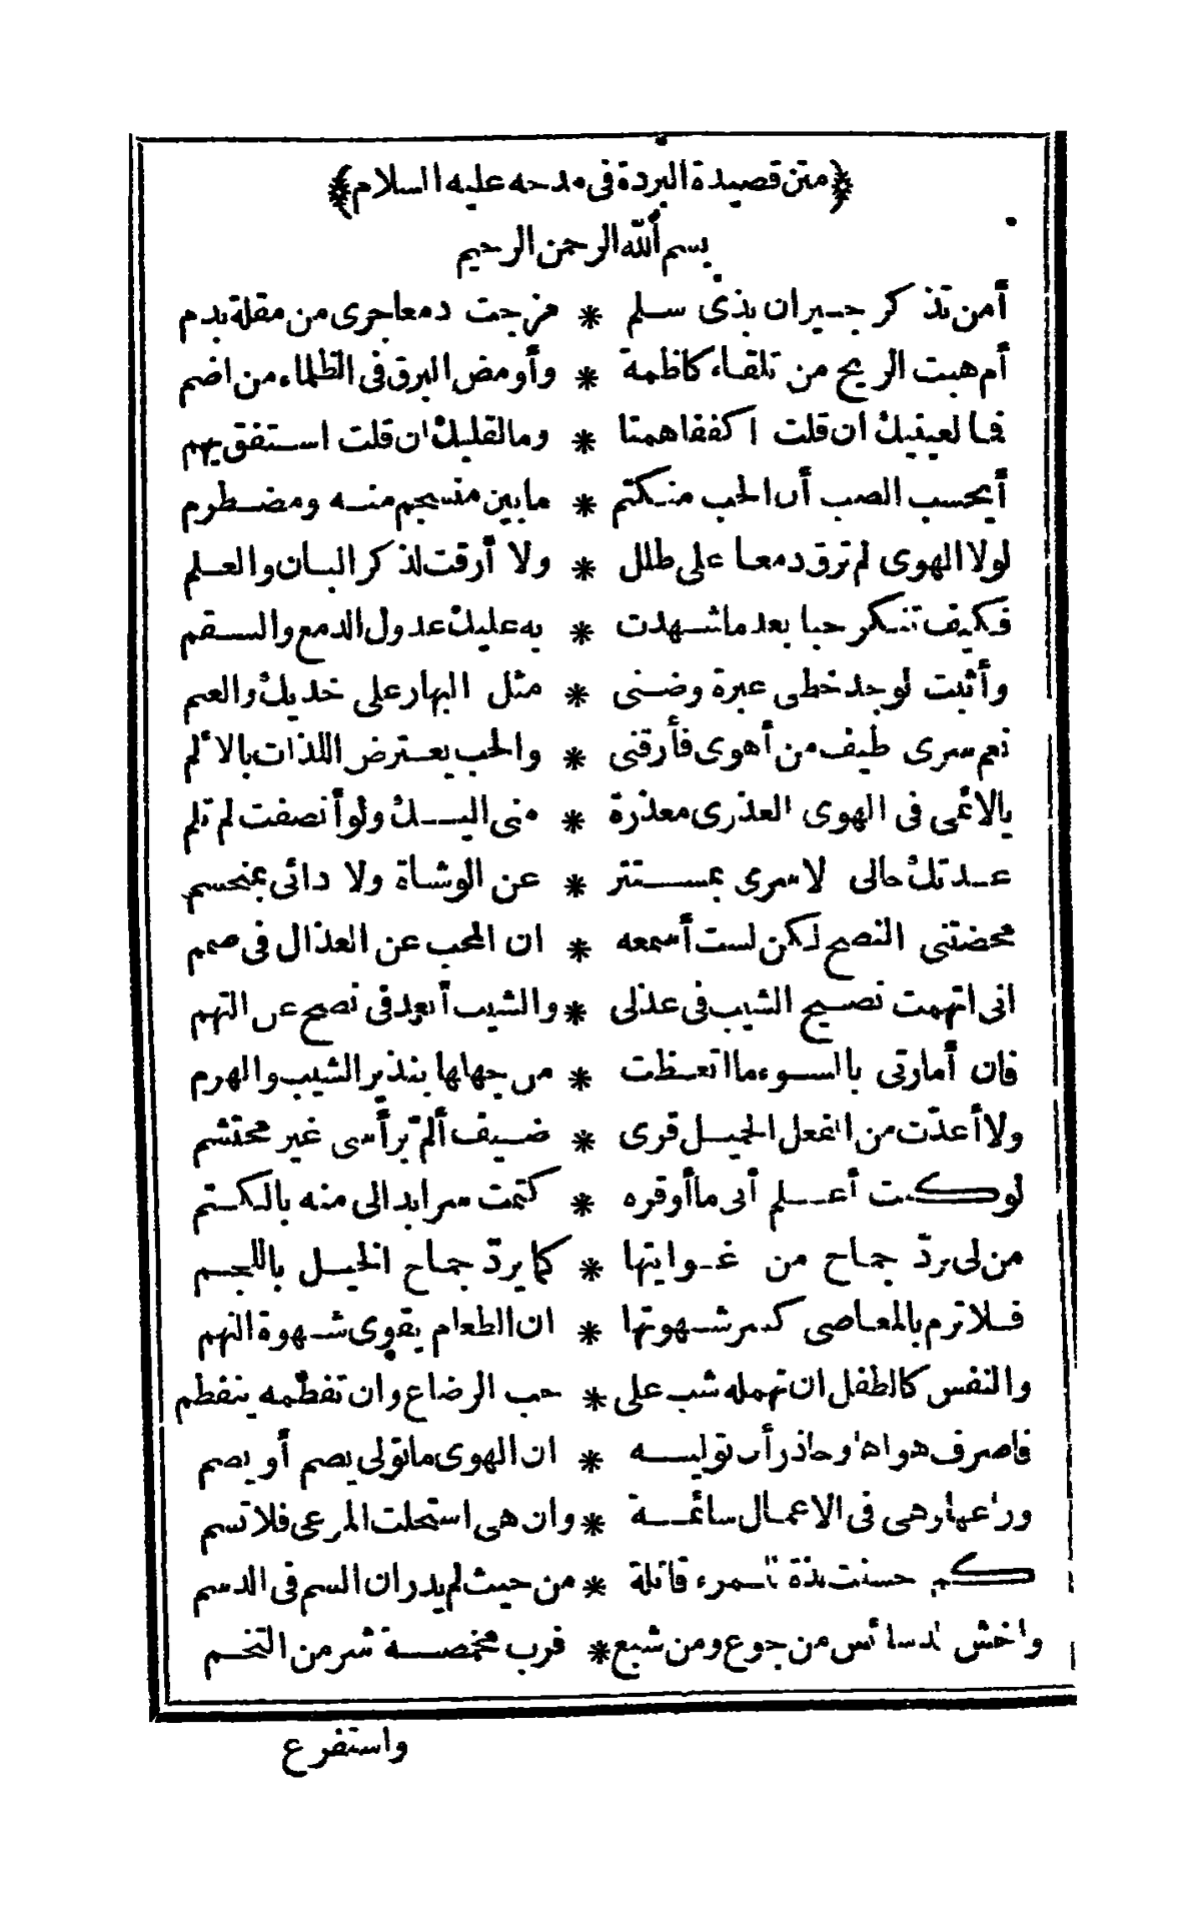 ﴿متن قصيدة البردة فى مدحه عليه السلام﴾
بسم الله الرحمن الرحيم
أمن تذكر جيران بذى سلم * مزجت دمعا جرى من مقلة بدم
أم هبت الريح من تلقاء كاظمة * وأومض البرق فى الظلماء من اضم
فما لعينيك ان قلت اكففا همتا * وما لقلبك ان قلت استفق يهم
أيحسب الصب أن الحب منكتم * ما بين منسجم منه ومضطرم
لولا الهوى لم ترق دمعا على طلل * ولا أرقت لذكر البان والعلم
فكيف تنكر حبا بعد ما شهدت * به عليك عدول الدمع والسقم
وأثبت لوجد خطى عبرة وضنى * مثل البهار على خديك والعم
نعم سرى طيف من أهوى فأرقنى * والحب يعترض اللذات بالألم
يالائمى فى الهوى العذرى معذرة * منى اليك ولو أنصفت لم تلم
عدتك حالى لا سرى بمستتر * عن الوشاة ولا دائى بمنحسم
محضتنى النصح لكن لست أسمعه * ان المحب عن العذال فى صمم
انى اتهمت نصيح الشيب فى عذلى * والشيب أبعد فى نصح عن التهم
فان أمارتى بالسوء ما اتعظت * من جهلها بنذير الشيب والهرم
ولا أعدّت من الفعل الجميل قرى * ضيف ألمّ برأسى غير محتشم
لو كنت أعلم أنى ما أوقره * كتمت سرا بدا لى منه بالكتم
من لى بردّ جماح من غوايتها * كما يردّ جماح الخيل باللجم
فلا ترم بالمعاصى كسر شهوتها * ان الطعام يقوى شهوة النهم
والنفس كالطفل ان تهمله شب على * حب الرضاع وان تفطمه ينفطم
فاصرف هواها وحاذر أن توليه * ان الهوى ما تولى يصم أو يصم
وراعها وهى فى الاعمال سائمة * وان هى استحلت المرعى فلا تسم
كم حسنت لذة للمرء قاتلة * من حيث لم يدر ان السم فى الدسم
واخش الدسائس من جوع ومن شبع * فرب مخمصة شر من التخم
واستفرغ